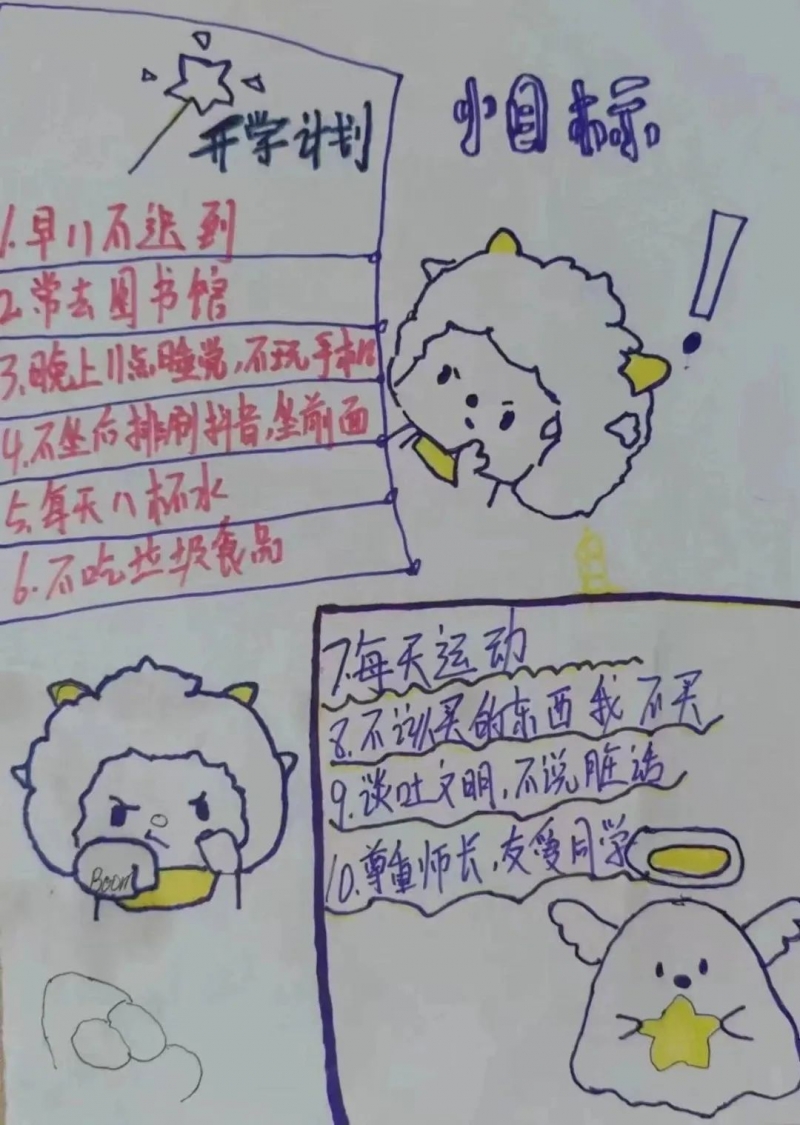 开学计划
小目标
1.早八不迟到
2.常去图书馆
3.晚上11点睡觉,不玩手机
4.不坐后排刷抖音,坐前面
5.每天八杯水
6.不吃垃圾食品
7.每天运动
8.不该买的东西我不买
9.谈吐文明,不说脏话
10.尊重师长,友爱同学
Boom